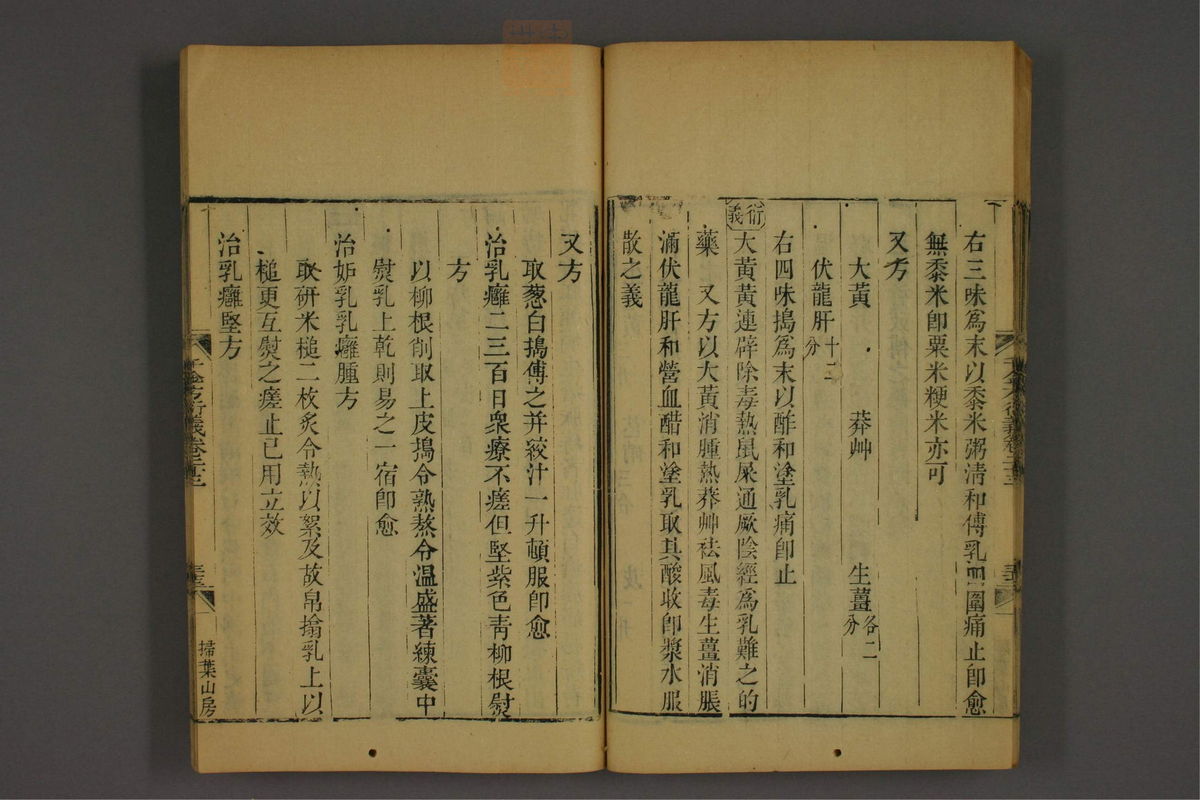 右三味爲末以黍米粥清和傅乳四圍痛止卽愈
無黍米卽粟米粳米亦可
又方
大黃　莽艸　生薑各二分
伏龍肝十二分
右四味搗爲末以酢和塗乳痛卽止
衍義
大黃黃連辟除毒熱鼠屎通厥陰經爲乳難之的
藥　又方以大黃消腫熱莽艸袪風毒生薑消脹
滿伏龍肝和營血醋和塗乳取其酸收卽漿水服
散之義
又方
取葱白搗傅之并絞汁一升頓服卽愈
治乳癰二三百日衆療不瘥但堅紫色靑柳根熨
方
以柳根削取上皮搗令熟熬令温盛著練囊中
熨乳上乾則易之一宿卽愈
治妬乳乳癰腫方
取研米槌二枚炙令熱以絮及故帛搨乳上以
槌更互熨之瘥止已用立效
治乳癰堅方
千金方衍義卷二十三
掃葉山房